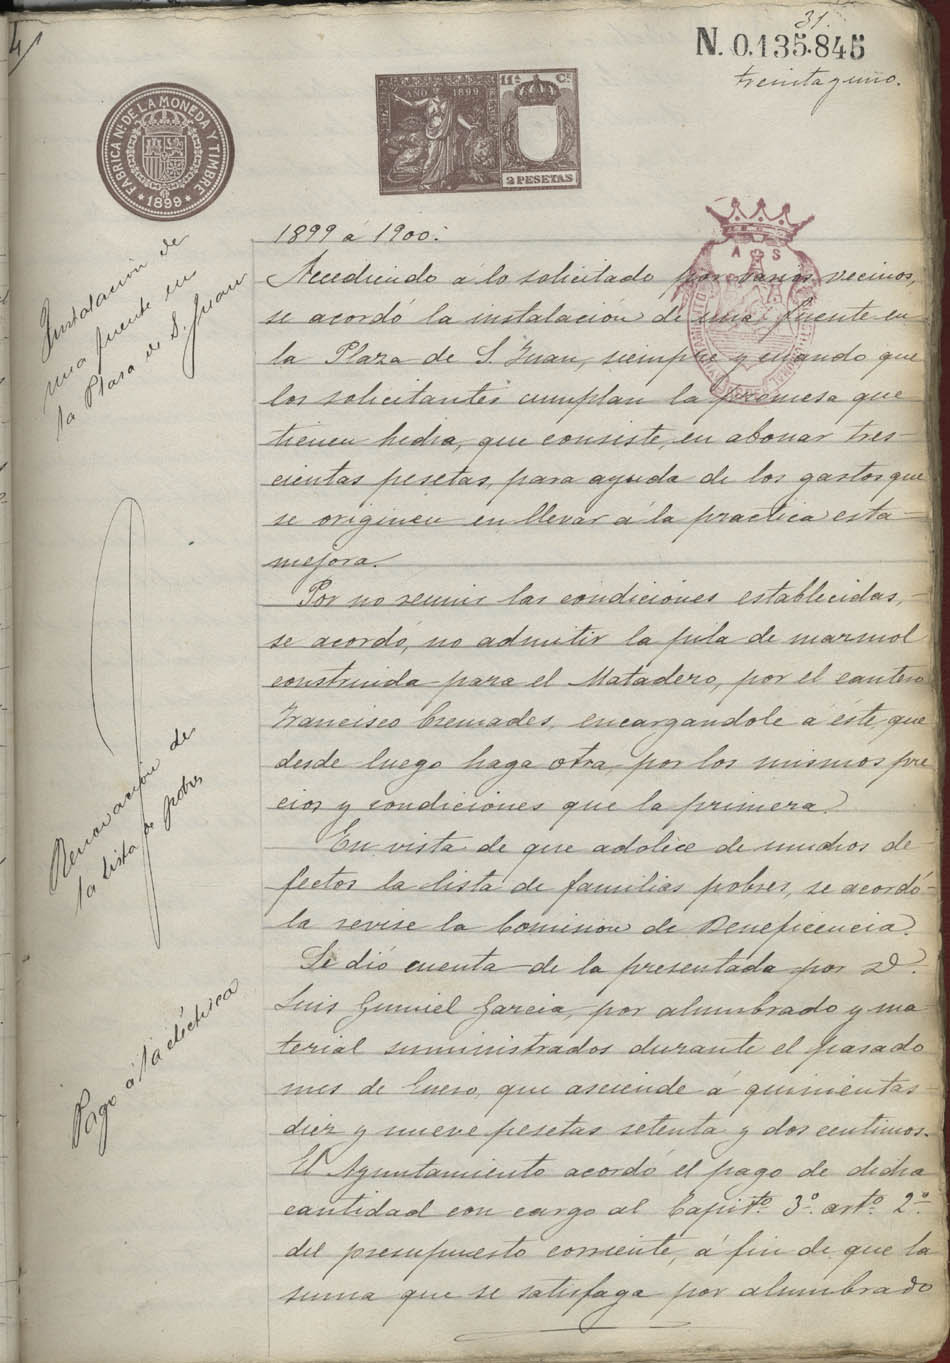 31.
N. 0.135.845
treinta y uno.
FABRICA NL. DE LA MONEDA Y TIMBRE
1899
AÑO 1899
11ª Cª
2 PESETAS
A S
1899 á 1900.
Instalación de
una fuente en
la Plaza de S. Juan
Accediendo á lo solicitado por varios vecinos,
se acordó la instalación de una fuente en
la Plaza de S. Juan, siempre y cuando que
los solicitantes cumplan la promesa que
tienen hecha, que consiste, en abonar tres-
cientas pesetas, para ayuda de los gastos que
se originen en llevar á la practica esta
mejora.
Por no reunir las condiciones establecidas,
se acordó, no admitir la pila de marmol
construida para el Matadero, por el cantero
Francisco Cremades, encargandole á éste, que
desde luego haga otra, por los mismos pre
cios y condiciones que la primera.
Renovación de
la lista de pobres
En vista de que adolece de muchos de-
fectos la lista de familias pobres, se acordó
la revise la Comision de Beneficencia.
Pago á la eléctrica
Se dió cuenta de la presentada por D.
Luis Gumiel Garcia, por alumbrado y ma
terial suministrados durante el pasado
mes de Enero, que asciende á quinientas
diez y nueve pesetas setenta y dos centimos.
El Ayuntamiento acordó el pago de dicha
cantidad con cargo al Capitº. 3º. artº. 2º.
del presupuesto corriente, á fin de que la
suma que se satisfaga por alumbrado